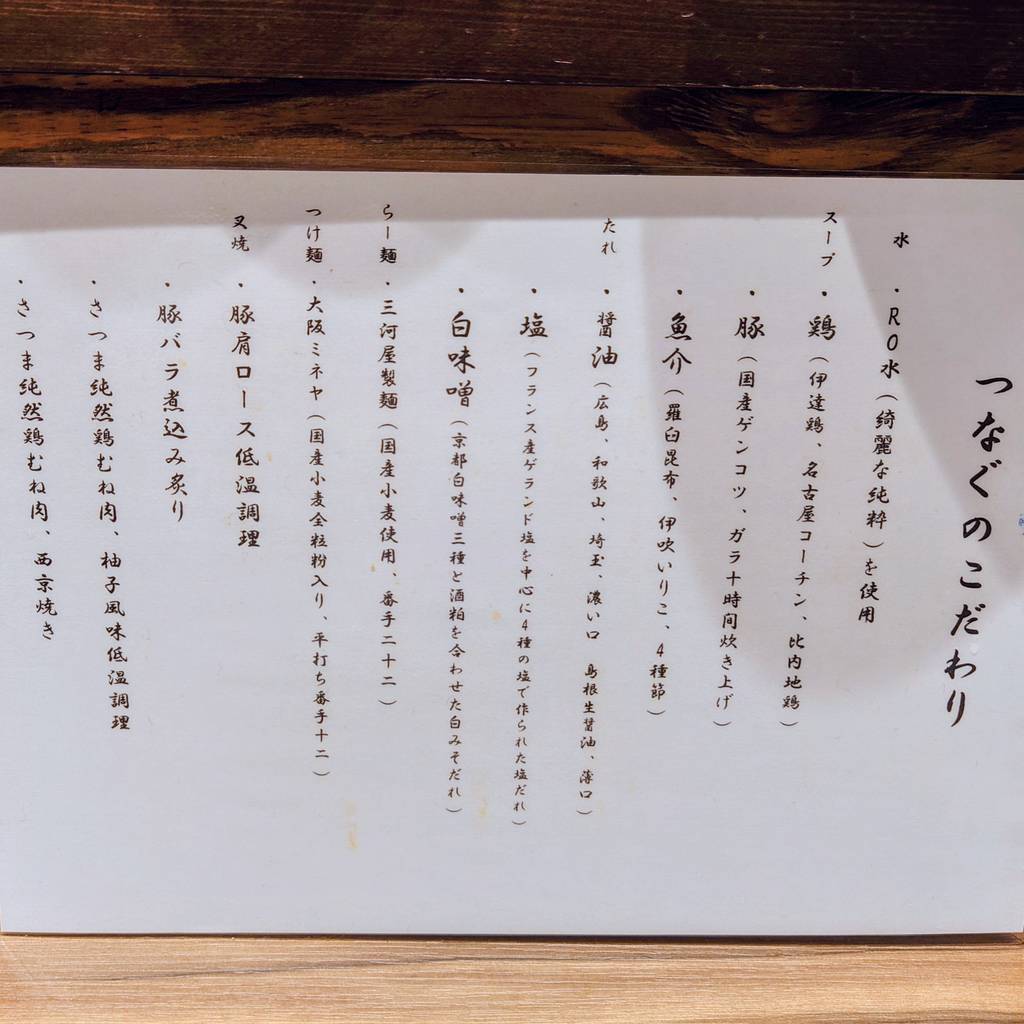 つなぐのこだわり
水 ・RO水（綺麗な純粋）を使用
スープ ・鶏（伊達鶏、名古屋コーチン、比内地鶏）
・豚（国産ゲンコツ、ガラ十時間炊き上げ）
・魚介（羅臼昆布、伊吹いりこ、4種節）
たれ ・醤油（広島、和歌山、埼玉、濃い口 島根生醤油、薄口）
・塩（フランス産ゲランド塩を中心に4種の塩で作られた塩だれ）
・白味噌（京都白味噌三種と酒粕を合わせた白みそだれ）
らー麺 ・三河屋製麺（国産小麦使用、番手二十二）
つけ麺 ・大阪ミネヤ（国産小麦全粒粉入り、平打ち番手十二）
叉焼 ・豚肩ロース低温調理
・豚バラ煮込み炙り
・さつま純然鶏むね肉、柚子風味低温調理
・さつま純然鶏むね肉、西京焼き